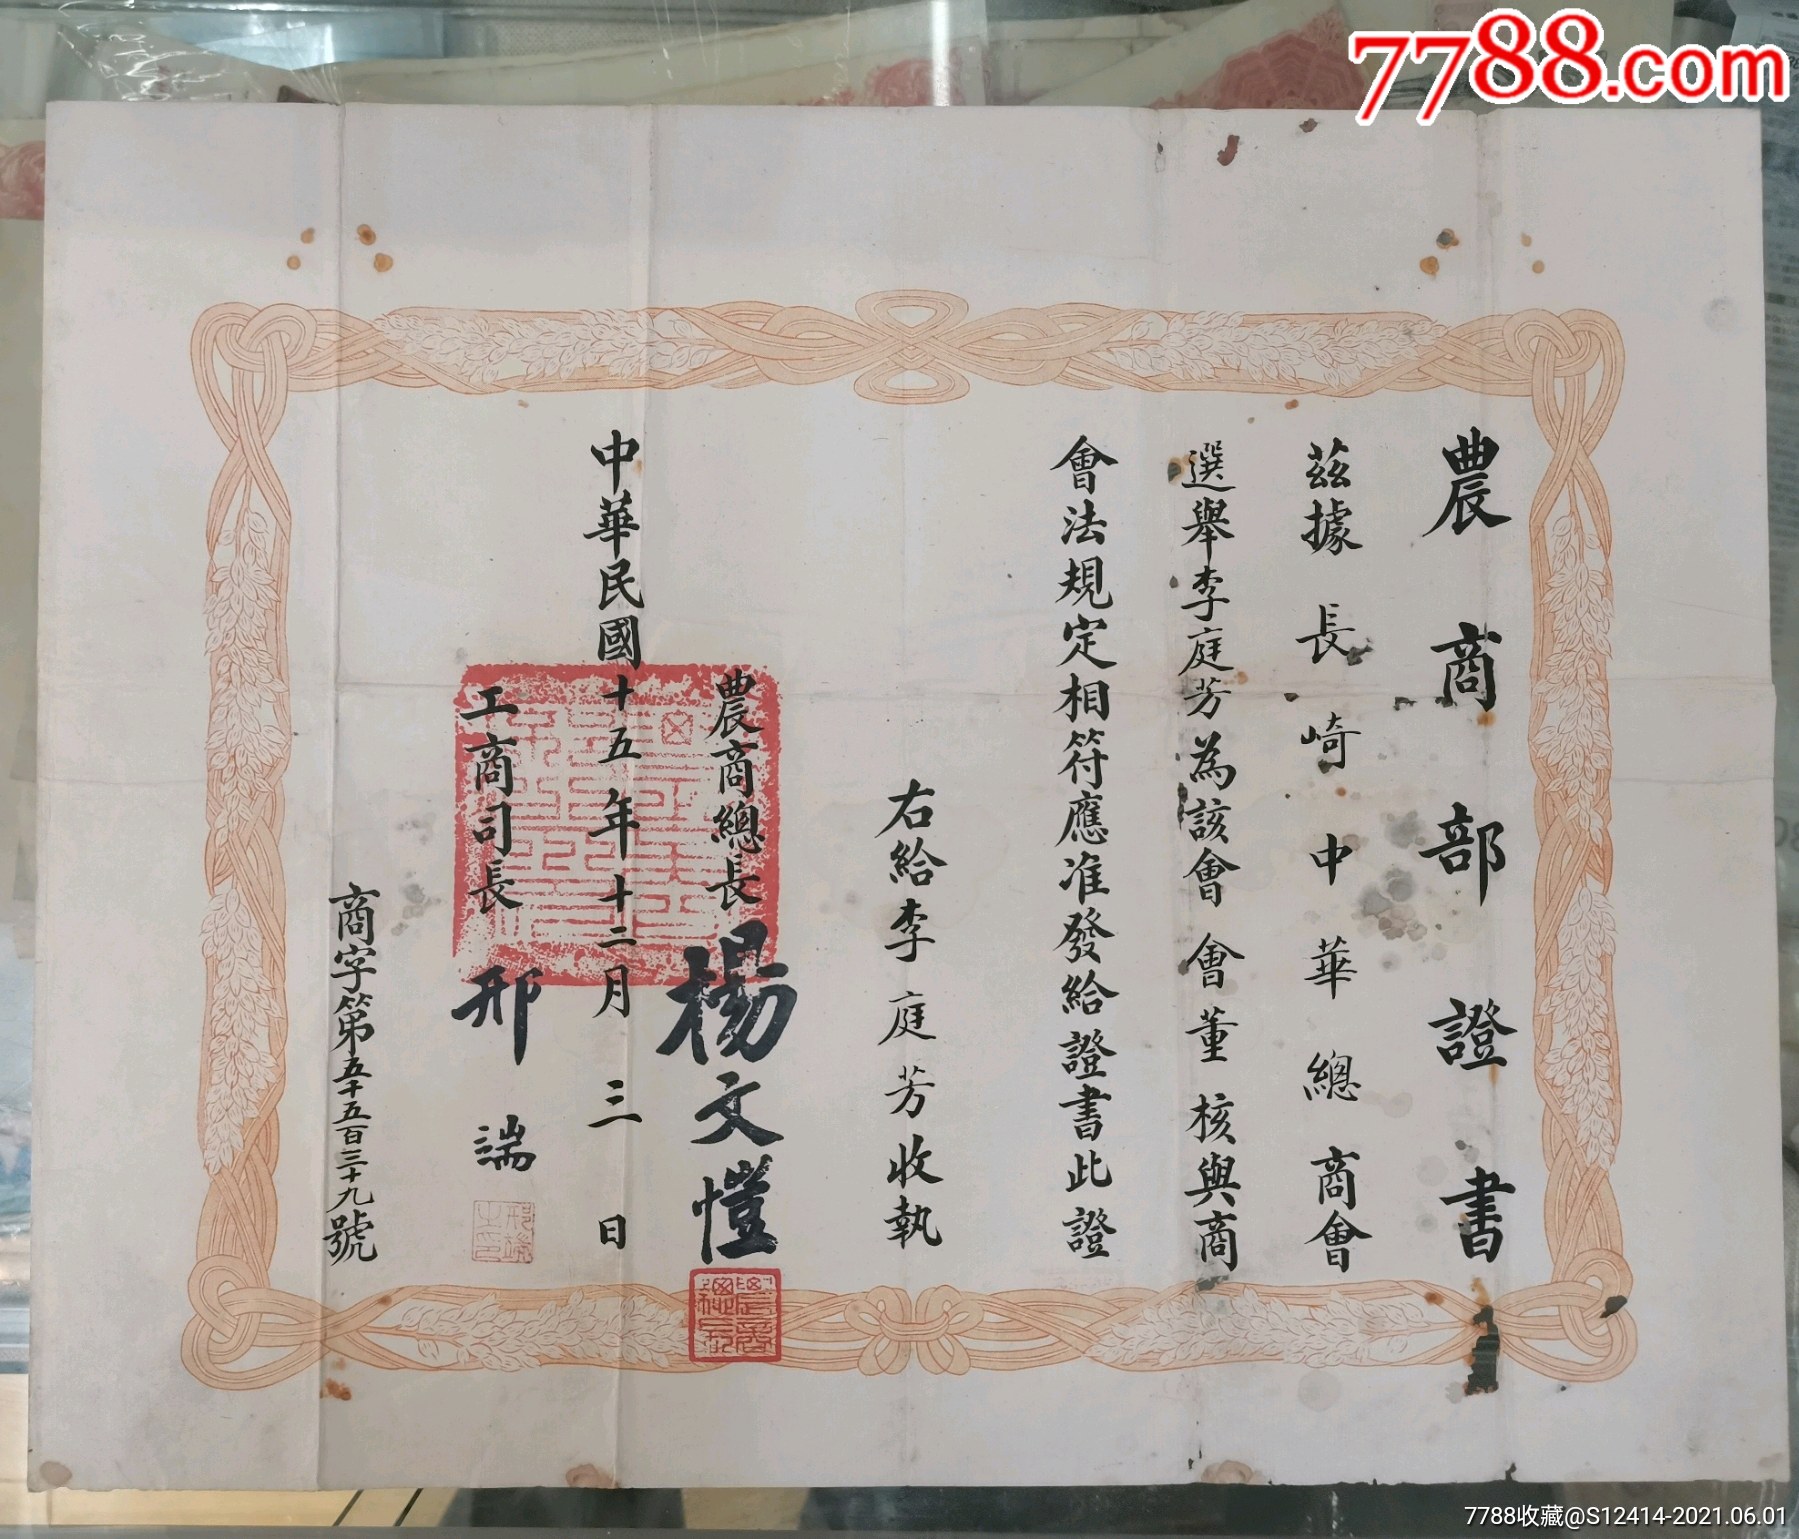 農商部證書
茲據長崎中華總商會
選舉李庭芳為該會會董核與商
會法規定相符應准發給證書此證
右給李庭芳收執
農商總長楊文愷
中華民國十五年十二月三日
工商司長邢端
商字第五千五百三十九號
7788.com
7788收藏@S12414-2021.06.01